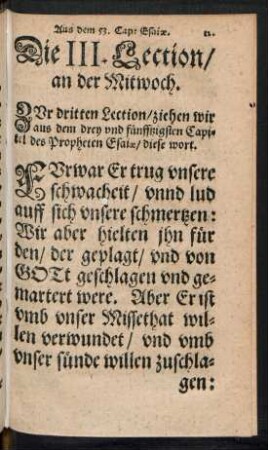 Aus dem 53. Cap: Esaiæ. 11.
Die III. Lection/
an der Mitwoch.
ZUr dritten Lection/ziehen wir
aus dem drey vnd fünfftzigsten Capi-
tel des Propheten Esaiæ/diese wort.
FUrwar Er trug vnsere
schwacheit/ vnnd lud
auff sich vnsere schmertzen:
Wir aber hielten jhn für
den/ der geplagt/ vnd von
GOTt geschlagen vnd ge-
martert were. Aber Er ist
vmb vnser Missethat wil-
len verwundet/ vnd vmb
vnser sünde willen zuschla-
gen: